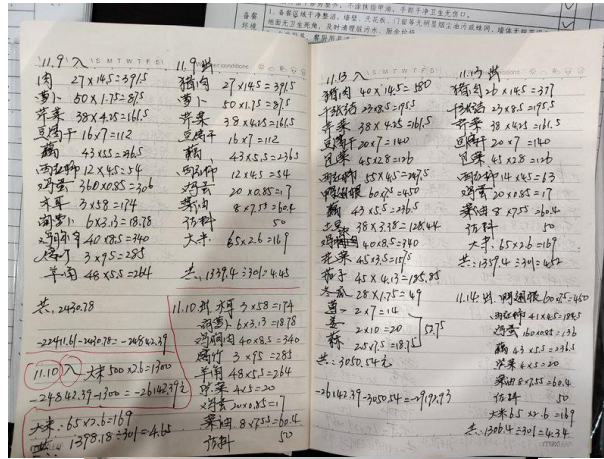 11.9 入
肉 27×14.5=391.5
萝卜 50×1.75=87.5
芹菜 38×4.25=161.5
豆腐干 16×7=112
藕 43×5.5=236.5
西红柿 12×4.5=54
鸡蛋 360×0.85=306
木耳 3×58=174
胡萝卜 6×3.13=18.78
鸡胸肉 40×8.5=340
腐竹 3×95=285
羊肉 48×5.5=264
共: 2430.78
-22411.61-2430.78=-24842.39
11.10 入 大米 500×2.6=1300
-24842.39-1300=-26142.39元
大米: 65×2.6=169
共: 1398.18÷301=4.65
11.9 出
猪肉 27×14.5=391.5
萝卜 50×1.75=87.5
芹菜 38×4.25=161.5
豆腐干 16×7=112
藕 43×5.5=236.5
西红柿 12×4.5=54
鸡蛋 20×0.85=17
菜油 8×7.55=60.4
佐料 50
大米. 65×2.6=169
共: 1339.4÷301=4.45
11.10 出 木耳 3×58=174
胡萝卜 6×3.13=18.78
鸡胸肉 40×8.5=340
腐竹 3×95=285
羊肉 48×5.5=264
芹菜 4×5=20
鸡蛋 20×0.85=17
菜油 8×7.55=60.4
佐料 50
11.13 入
猪肉 40×14.5=580
千张结 23×8.5=195.5
芹菜 38×4.25=161.5
豆腐干 20×7=140
包菜 45×2.8=126
西红柿 55×4.5=247.5
鸭翅根 60×7.5=450
藕 43×5.5=236.5
土豆 38×3.38=128.44
鸡胸肉 40×8.5=340
花菜 45×3.5=157.5
茄子 45×4.13=185.85
冬瓜 28×1.75=49
葱 2×7=14
姜 2×10=20
蒜 2.5×7.5=18.75
52.75
共: 3050.54元
-26142.39-3050.54=-29192.93
11.13 出
猪肉 26×14.5=377
千张结 23×8.5=195.5
芹菜 38×4.25=161.5
豆腐干 20×7=140
包菜 45×2.8=126
西红柿 14×4.5=63
鸡蛋 20×0.85=17
菜油 8×7.55=60.4
佐料 50
大米. 65×2.6=169
共: 1359.4÷301=4.52
11.14 出 鸭翅根 60×7.5=450
西红柿 41×4.5=184.5
鸡蛋 160×0.85=136
藕 43×5.5=236.5
芹菜 4×5=20
菜油 8×7.55=60.4
佐料 50
大米 65×2.6=169
共: 1306.4÷301=4.34